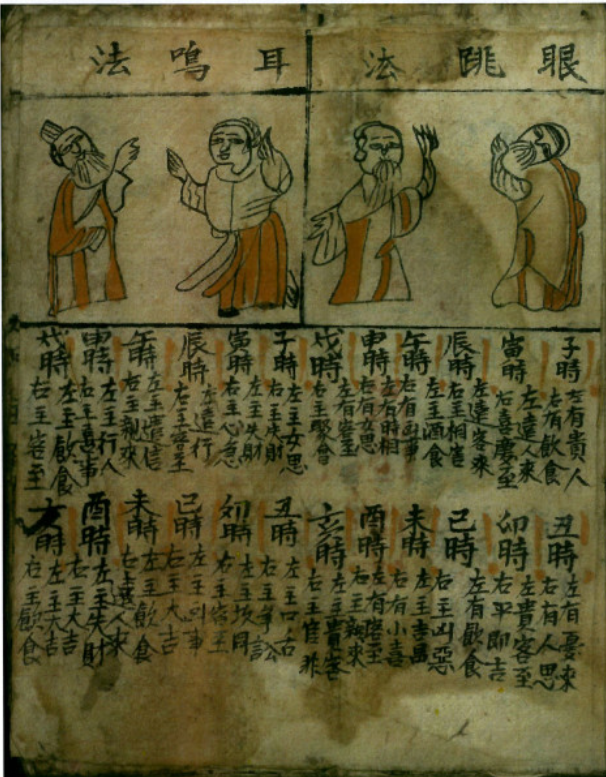 眼跳法
子時
左有貴人
右有飲食
寅時
左遠人來
右喜慶至
辰時
左遠客來
右主相害
午時
左主酒食
右有凶事
申時
左有時相
右有女思
戌時
左有客至
右主聚會
丑時
左有憂來
右有人思
卯時
左貴客至
右平即吉
巳時
左有飲食
右主凶惡
未時
左主吉昌
右有小喜
酉時
左有客至
右主親來
亥時
左主貴客
右主官非
耳鳴法
子時
左主女思
右主失財
寅時
左主失財
右主心急
辰時
左遠行
右主客至
午時
左主遠信
右主親來
申時
左主行人
右主喜事
戌時
左主飲食
右主客至
丑時
左主口舌
右主爭訟
卯時
左主
右主客至
巳時
左主凶事
右主大吉
未時
左主飲食
右遠人來
酉時
左主失財
右主大吉
亥時
左主大吉
右主飲食